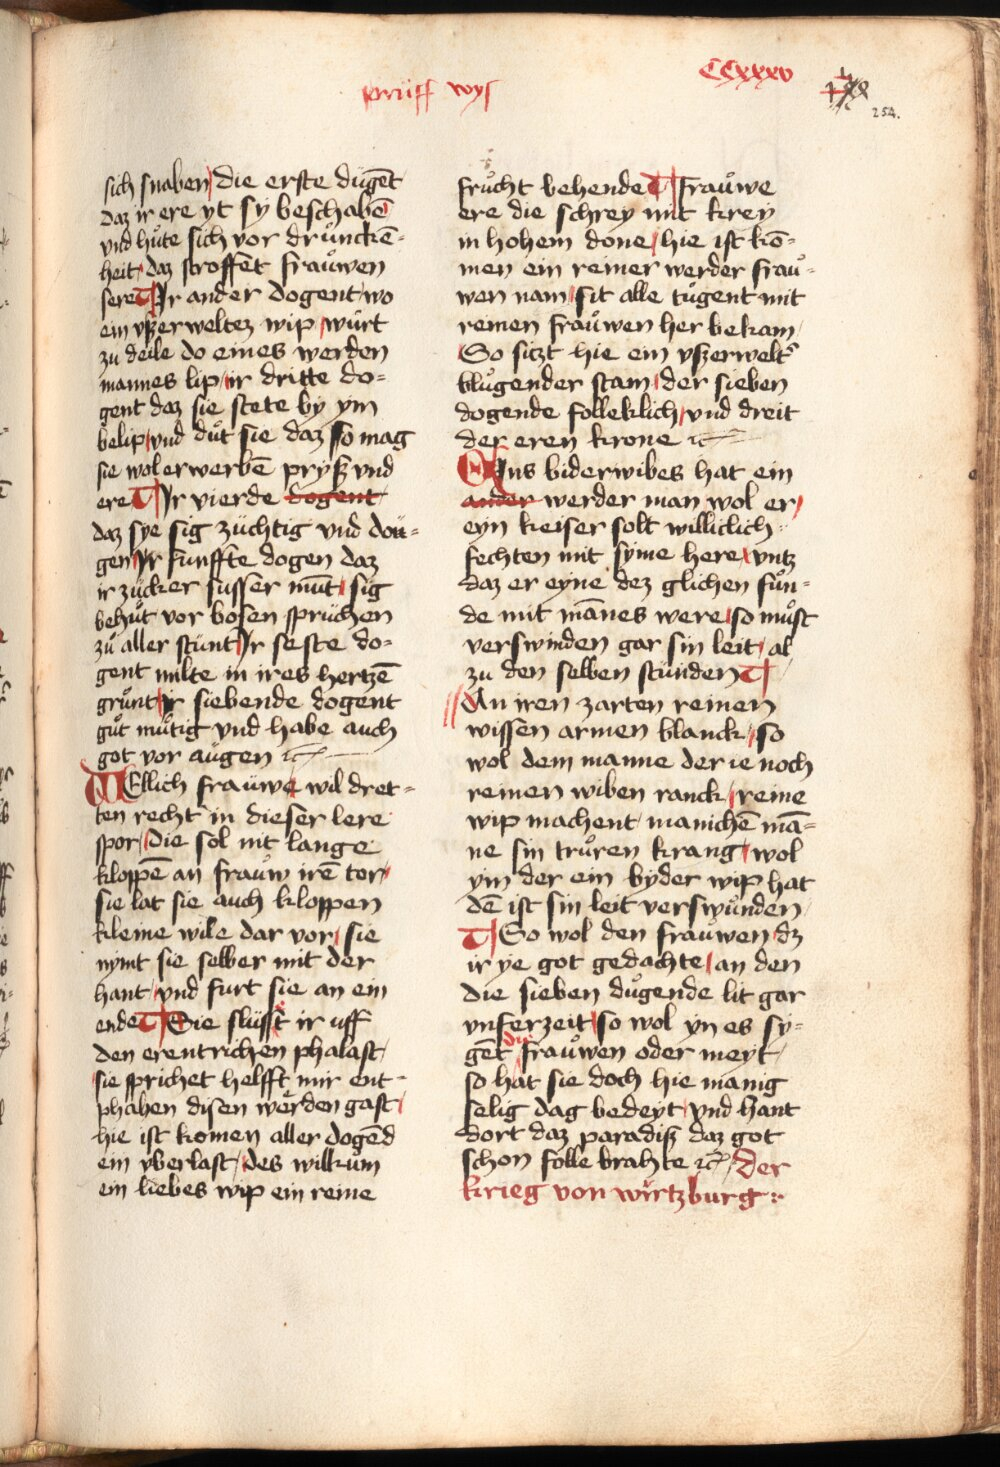 prüff wyſ
CCxxxv
254.
sich snaben / die erste dúgēt
daz ir ere yt sy beschabē
vnd hůte sich vor drůnckē-
heit / daz stroffet fraůwen
sere Ir ander dogent wo
ein vszerweltez wip / wůrt
zu deile do eines werden
mannes lip / ir dritte do-
gent daz sie stete by ym
belip / vnd důt sie daz so mag
sie wol erwerbē prysz vnd
ere Ir vierde dogent
daz sye sig züchtig vnd dou-
gen / Ir funffte dogen daz
ir zücker susser můt / sig
behůt vor bosen sprüchen
zů aller stünt / Ir seste do-
gent milte in ires hertzē
grůnt / ir siebende dogent
gůt můtig vnd habe auch
got vor aůgen ꝛc
WEllich fraüwe wil dret-
ten recht in dieser lere
spor / die sol nit lange
kloppē an fraůw irē tor /
sie lat sie auch kloppen
kleine wile dar vor / sie
nymt sie selber mit der
hant / vnd furt sie an ein
ende Sie slüsst ir uff
den erentrichen phalast /
sie sprichet helfft mir ent-
phahen disen werden gast /
hie ist komen aller dogēd
ein vberlast / des wilkům
ein liebes wip ein reine
frůcht behende fraůwe
ere die schrey mit krey
in hohem done / hie ist kō-
men ein reiner werder fraů-
wen nam / sit alle tůgent mit
reinen fraůwen her bekam /
So sitzt hie ein vszerwelt
blůgender stam / der sieben
dogende folleklich / vnd dreit
der eren krone ꝛc
EIns biderwibes hat ein
ander werder man wol er /
eyn keiser solt williclich
fechten mit syme here / vntz
daz er eyne dez glichen fůn-
de mit mānes were / so můst
verswinden gar sin leit / al
zu den selben stünden
An iren zarten reinen
wissen armen blanck / so
wol dem manne der ie noch
reinen wiben ranck / reine
wip machent manichē mā-
ne sin trůren krang / wol
ym der ein byder wip hat
dē ist sin leit verswůnden
So wol den fraůwen dz
ir ye got gedachte / an den
die sieben důgende lit gar
vnserzeit / so wol yn es sy-
gēt die fraůwen oder meyt /
so hat sie doch hie manig
selig dag bedeyt / vnd hant
dort daz paradisz daz got
schon folle brahte ꝛc / der
krieg von wirtzburg :·